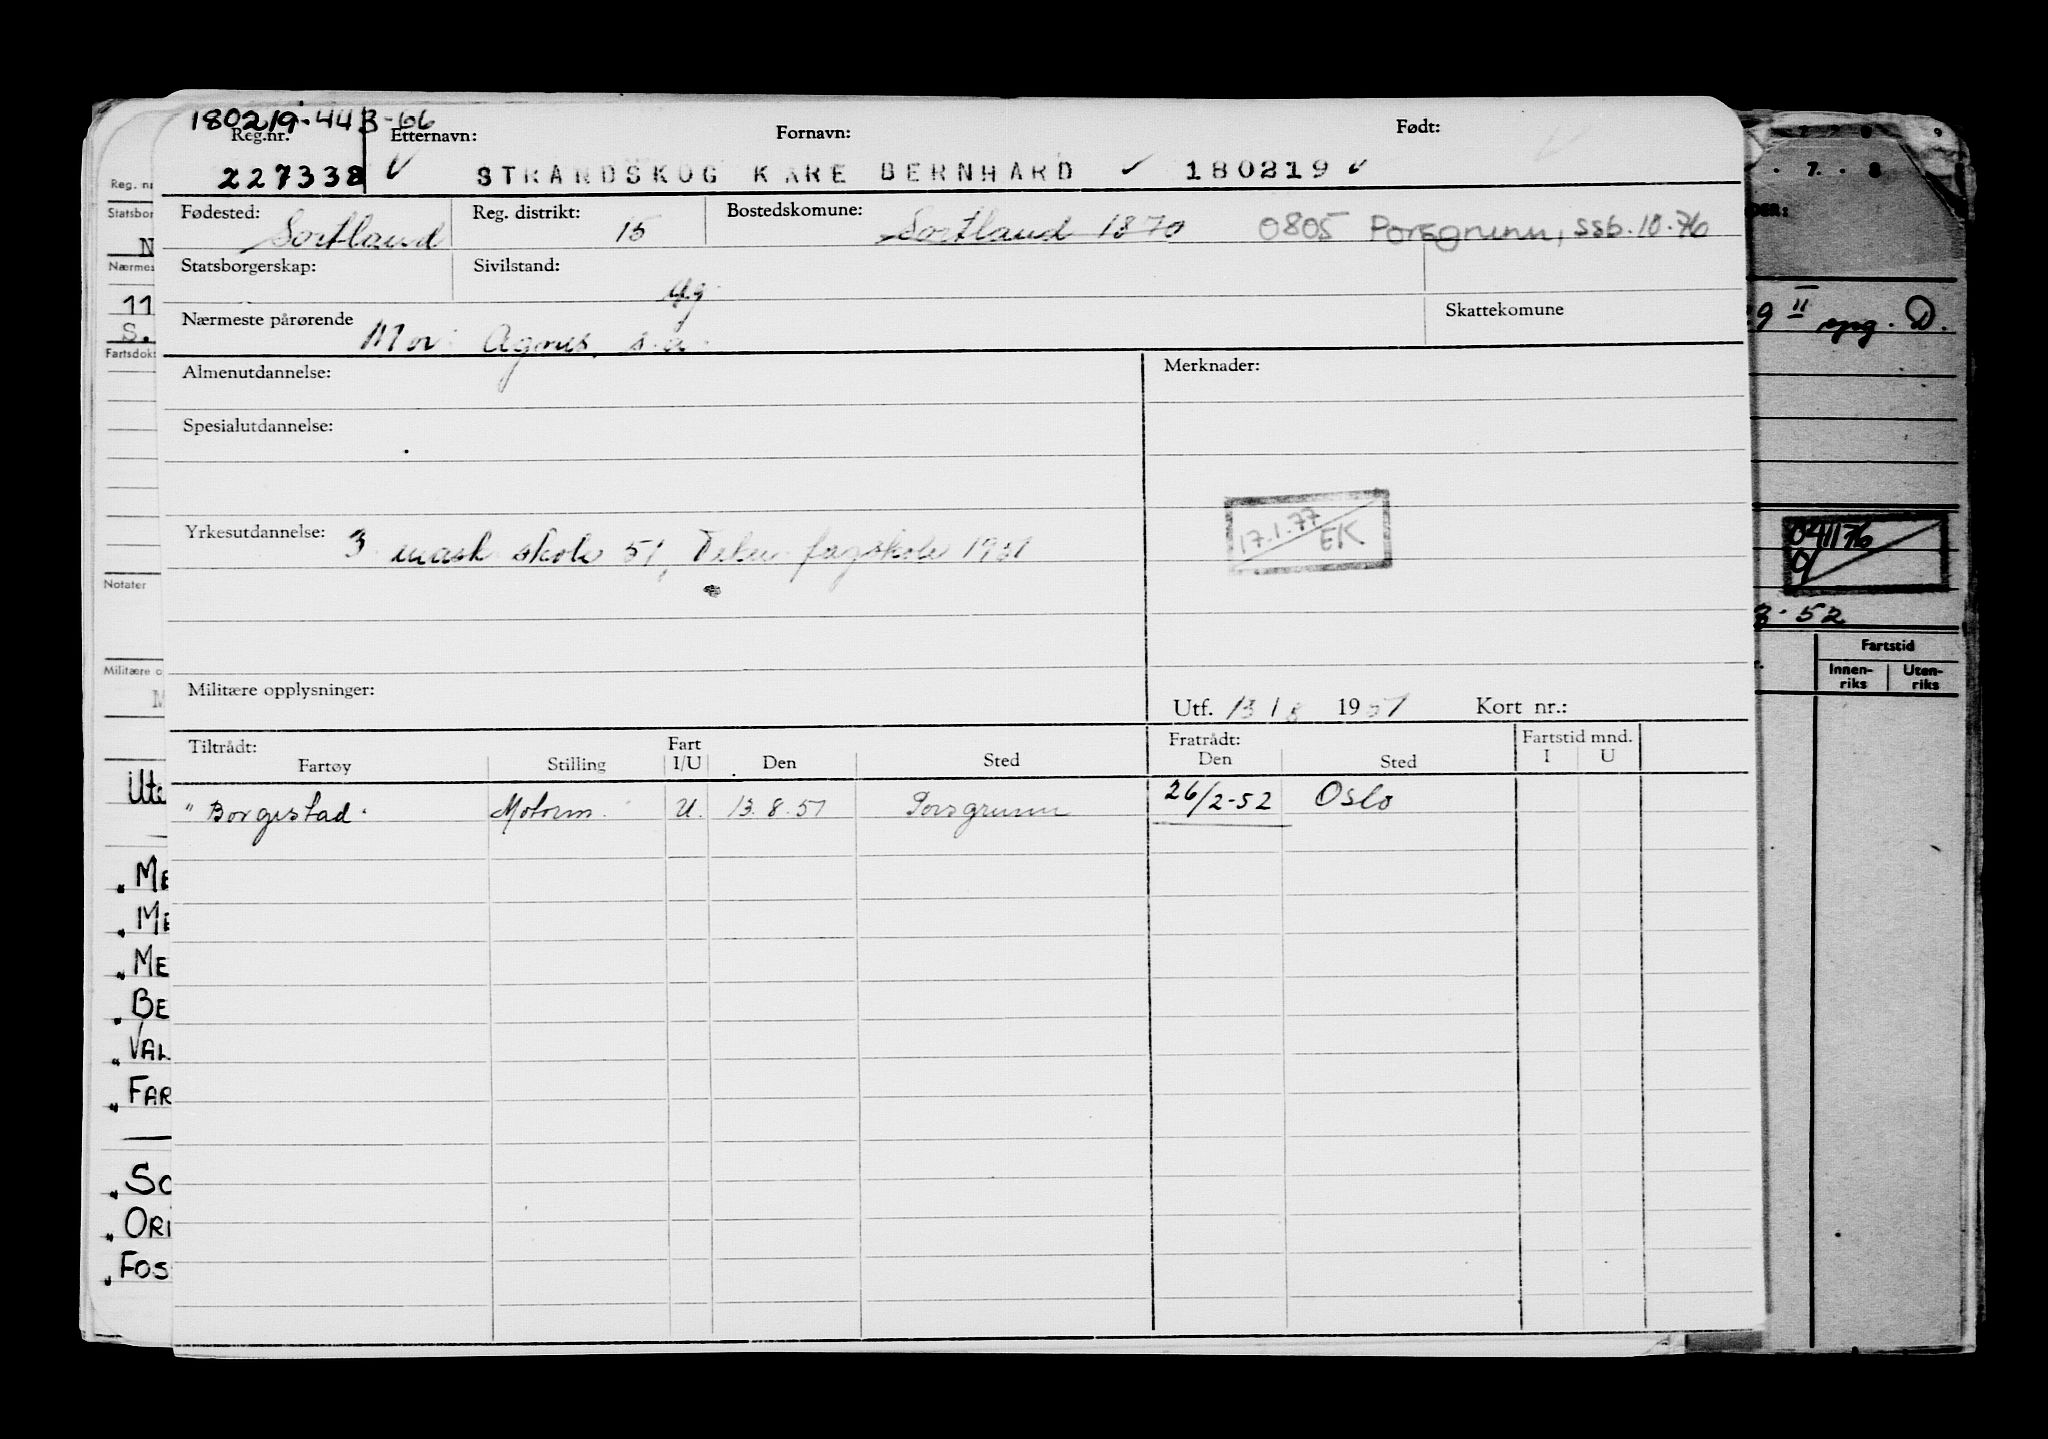 180219-443-66
Reg.nr. Etternavn: Fornavn: Født:
227338 STRANDSKOG KARE BERNHARD 180219
Fødested: Sortland Reg. distrikt: 15 Bostedskomune: Sortland 1870 0805 Porsgrunn, ssb.10.76
Statsborgerskap: Sivilstand: ug.
Nærmeste pårørende Mor: Agnes s.a. Skattekomune
Almenutdannelse: Merknader:
Spesialutdannelse:
17.1.77 EK
Yrkesutdannelse: 3 mask skole 51, fagskole 1951
Militære opplysninger: Utf. 13/8 1951 Kort nr.:
Tiltrådt: Fratrådt: Fartstid mnd.
Fartøy Stilling Fart I/U Den Sted Den Sted I U
"Borgestad" Motorm. U. 13.8.51 Porsgrunn 26/2-52 Oslo
Reg. nr
Statsbor
N
Nærmes
11
S.
Fartsdok
Notater
Militære o
M
Ute
"ME
"ME
"ME
"BE
"VAL
"FAR
"SO
"ORI
"FOS
7. 8
DER:
9 II opg. D.
041176
3.52
Fartstid
Innen-riks Uten-riks